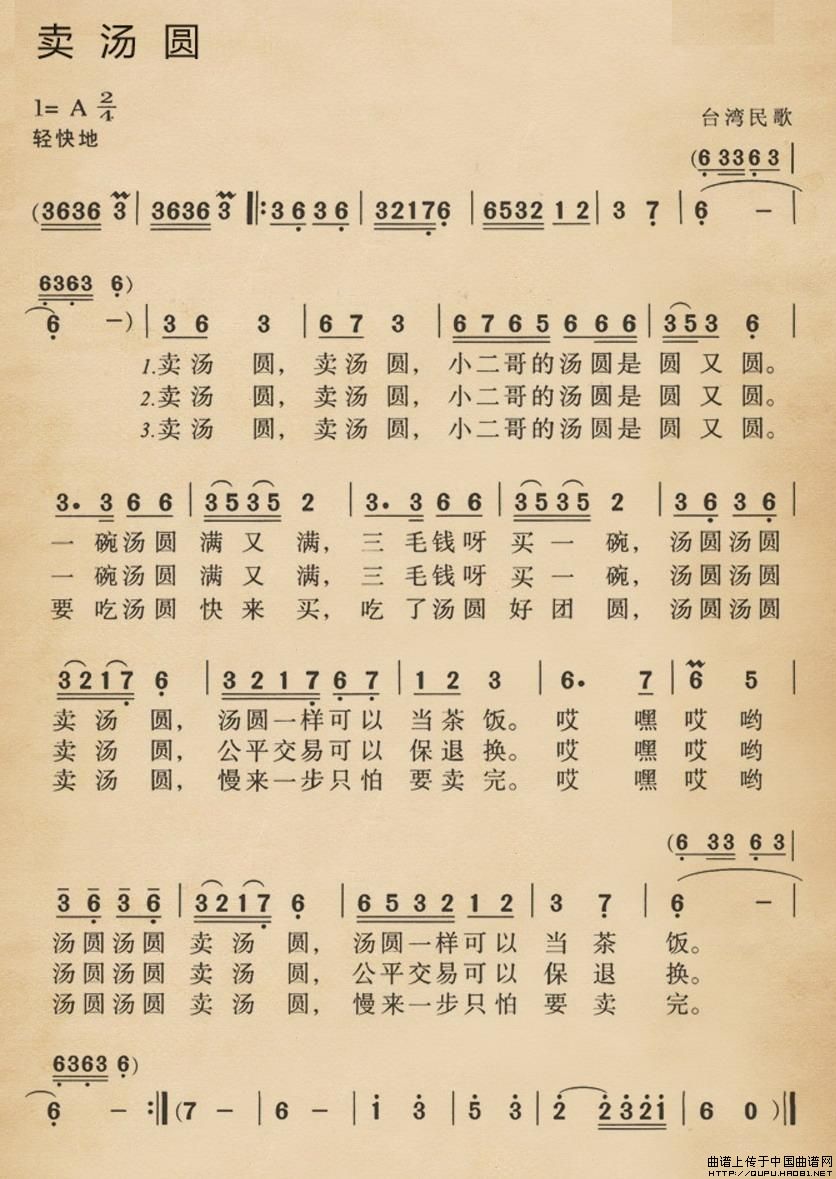 卖汤圆
1= A 2/4
轻快地
台湾民歌
(6 3363|
(3636 3|3636 3‖:3636|32176|6532 12|3 7|6 -|
6363 6)
6 -)|36 3|67 3|6765 666|353 6|
1.卖汤 圆，卖汤圆，小二哥的汤圆是 圆又圆。
2.卖汤 圆，卖汤圆，小二哥的汤圆是 圆又圆。
3.卖汤 圆，卖汤圆，小二哥的汤圆是 圆又圆。
3. 3 6 6|3535 2|3. 3 6 6|3535 2|3 6 3 6|
一碗汤圆满又满，三毛钱呀买一碗，汤圆汤圆
一碗汤圆满又满，三毛钱呀买一碗，汤圆汤圆
要吃汤圆快来买，吃了汤圆好团圆，汤圆汤圆
3217 6|3 2 1 7 6 7|1 2 3|6. 7|6 5|
卖汤圆，汤圆一样可以 当茶饭。哎 嘿哎哟
卖汤圆，公平交易可以 保退换。哎 嘿哎哟
卖汤圆，慢来一步只怕 要卖完。哎 嘿哎哟
(6 33 6 3|
3 6 3 6|3217 6|6532 12|3 7|6 -|
汤圆汤圆 卖汤圆，汤圆一样可以 当茶 饭。
汤圆汤圆 卖汤圆，公平交易可以 保退 换。
汤圆汤圆 卖汤圆，慢来一步只怕 要卖 完。
6363 6)
6 -:‖(7 -|6 -|1 3|5 3|2 2321|6 0)‖
曲谱上传于中国曲谱网
HTTP://QUPU.HAO81.NET